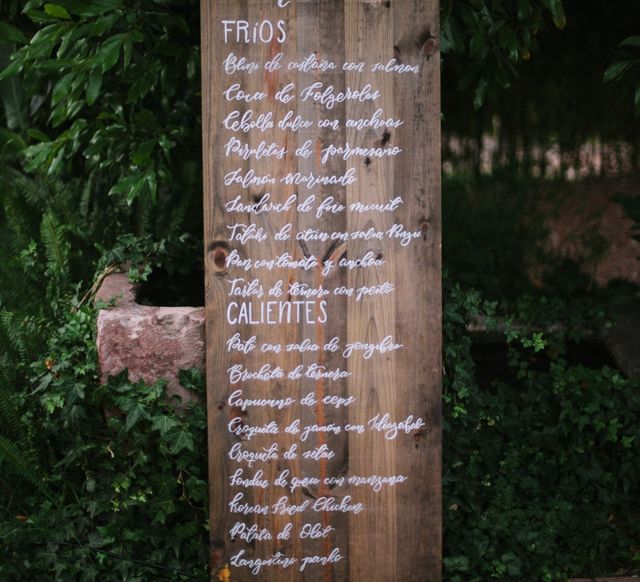 FRÍOS
Blini de castaña con salmon
Coca de Folgeroles
Cebolla dulce con anchoas
Piruletas de parmesano
Salmón Marinado
Sandwich de foie micuit
Tataki de atún con salsa Ponzu
Pan con tomate y anchoa
Tartar de ternera con pesto
CALIENTES
Pato con salsa de jengibre
Brocheta de ternera
Capuccino de ceps
Croqueta de jamón con Idiazabal
Croqueta de setas
Fondue de queso con manzana
Korean Fried Chicken
Patata de Olot
Langostino panko